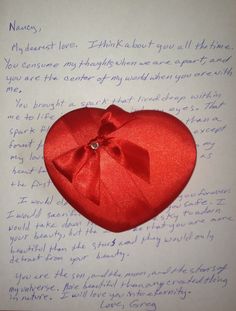 Nancy,
My dearest love. I think about you all the time.
You consume my thoughts when we are apart, and
you are the center of my world when you are with
me.
You brought a spark that lived deep within
me to life eyes. That
spark than a
forest except
my lov
heart
the first
I would d you forever
I would sacrifice safe. I
would take down sky to adorn
your beauty, but that you are more
beautiful than the stars and they would only
detract from your beauty.
You are the son, and the moon, and the stars of
my universe. More beautiful than any created thing
in nature. I will love you into eternity.
Love, Greg